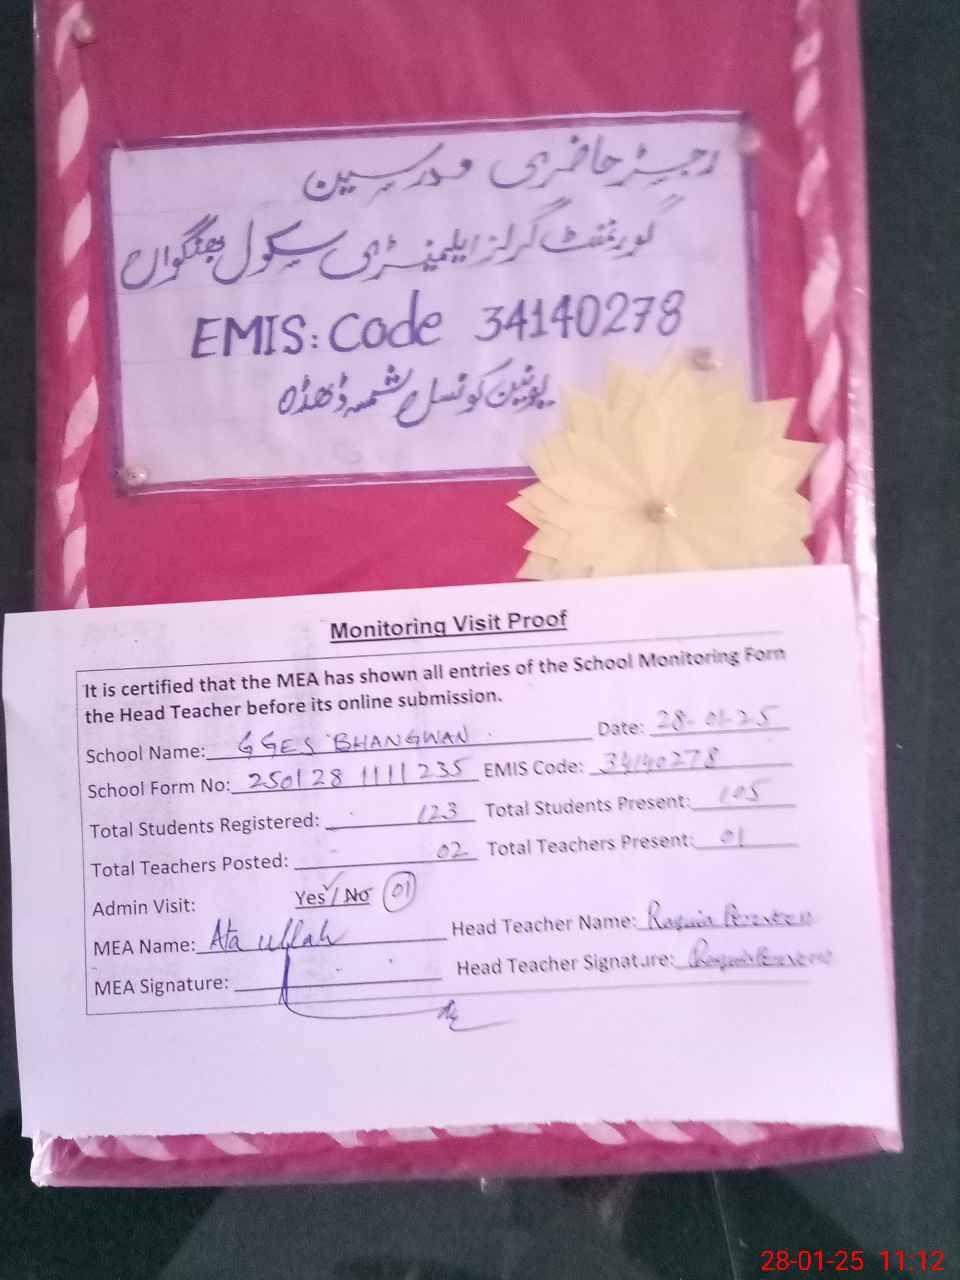 رجسٹر حاضری مدرسین
گورنمنٹ گرلز ایلیمنٹری سکول بھنگواں
EMIS: Code 34140278
یونین کونسل شمسہ ڈھڈہ
Monitoring Visit Proof
It is certified that the MEA has shown all entries of the School Monitoring Form
the Head Teacher before its online submission.
School Name: GGES BHANGWAN Date: 28-01-25
School Form No: 250128 1111 235 EMIS Code: 34140278
Total Students Registered: 123 Total Students Present: 105
Total Teachers Posted: 02 Total Teachers Present: 01
Admin Visit: Yes / No 01
MEA Name: Ata ullah Head Teacher Name:
MEA Signature: Head Teacher Signature:
28-01-25 11:12